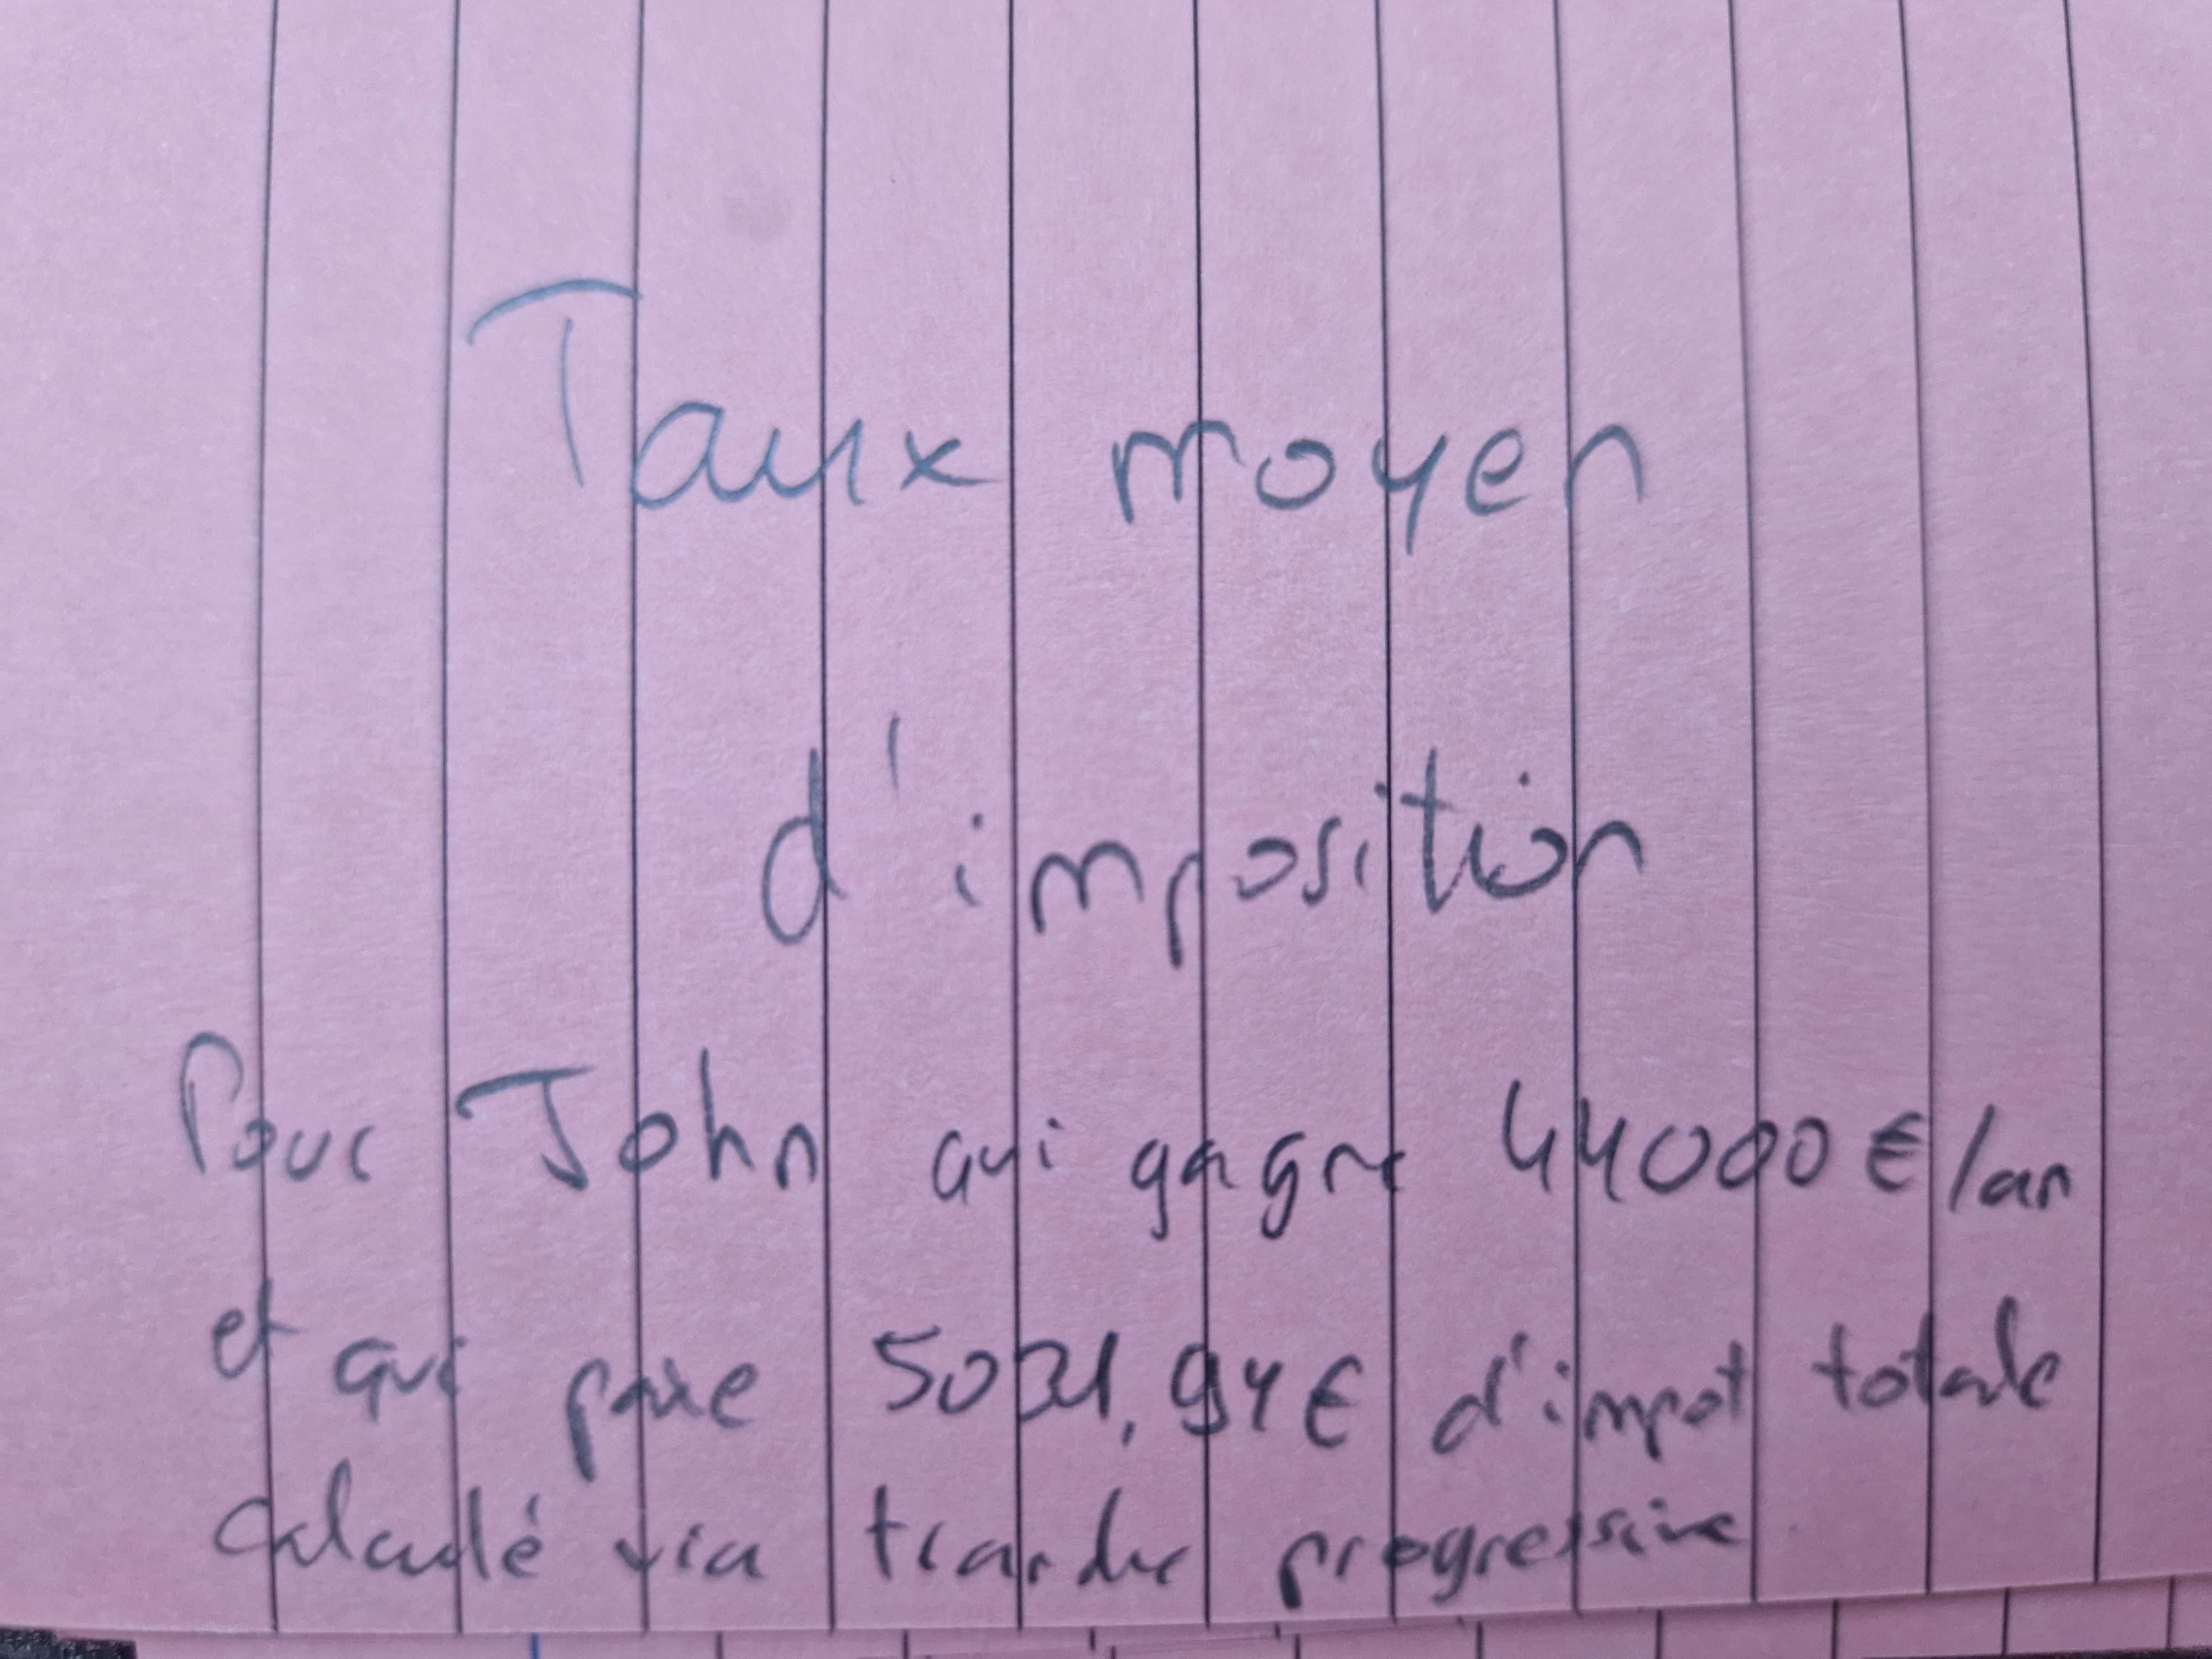 Taux moyen
d'imposition
Pour John qui gagne 44000 €/an
et qui paie 5031,94€ d'impot totale
calculé via tranche progressive